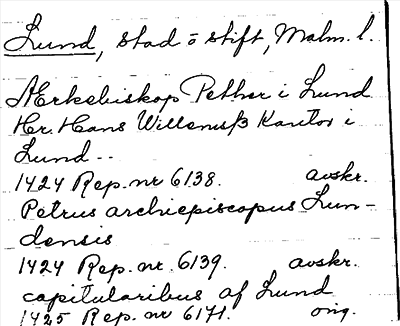 Lund, stad o stift, Malm. l.
Ærkebiskop Pether i Lund
Her. Hans Willemsß Kantor i
Lund --
1424 Rep. nr 6138. avskr.
Petrus archiepiscopus Lun-
densis
1424 Rep. nr. 6139. avskr.
capitularibus af Lund
1425 Rep. nr 6171. orig.